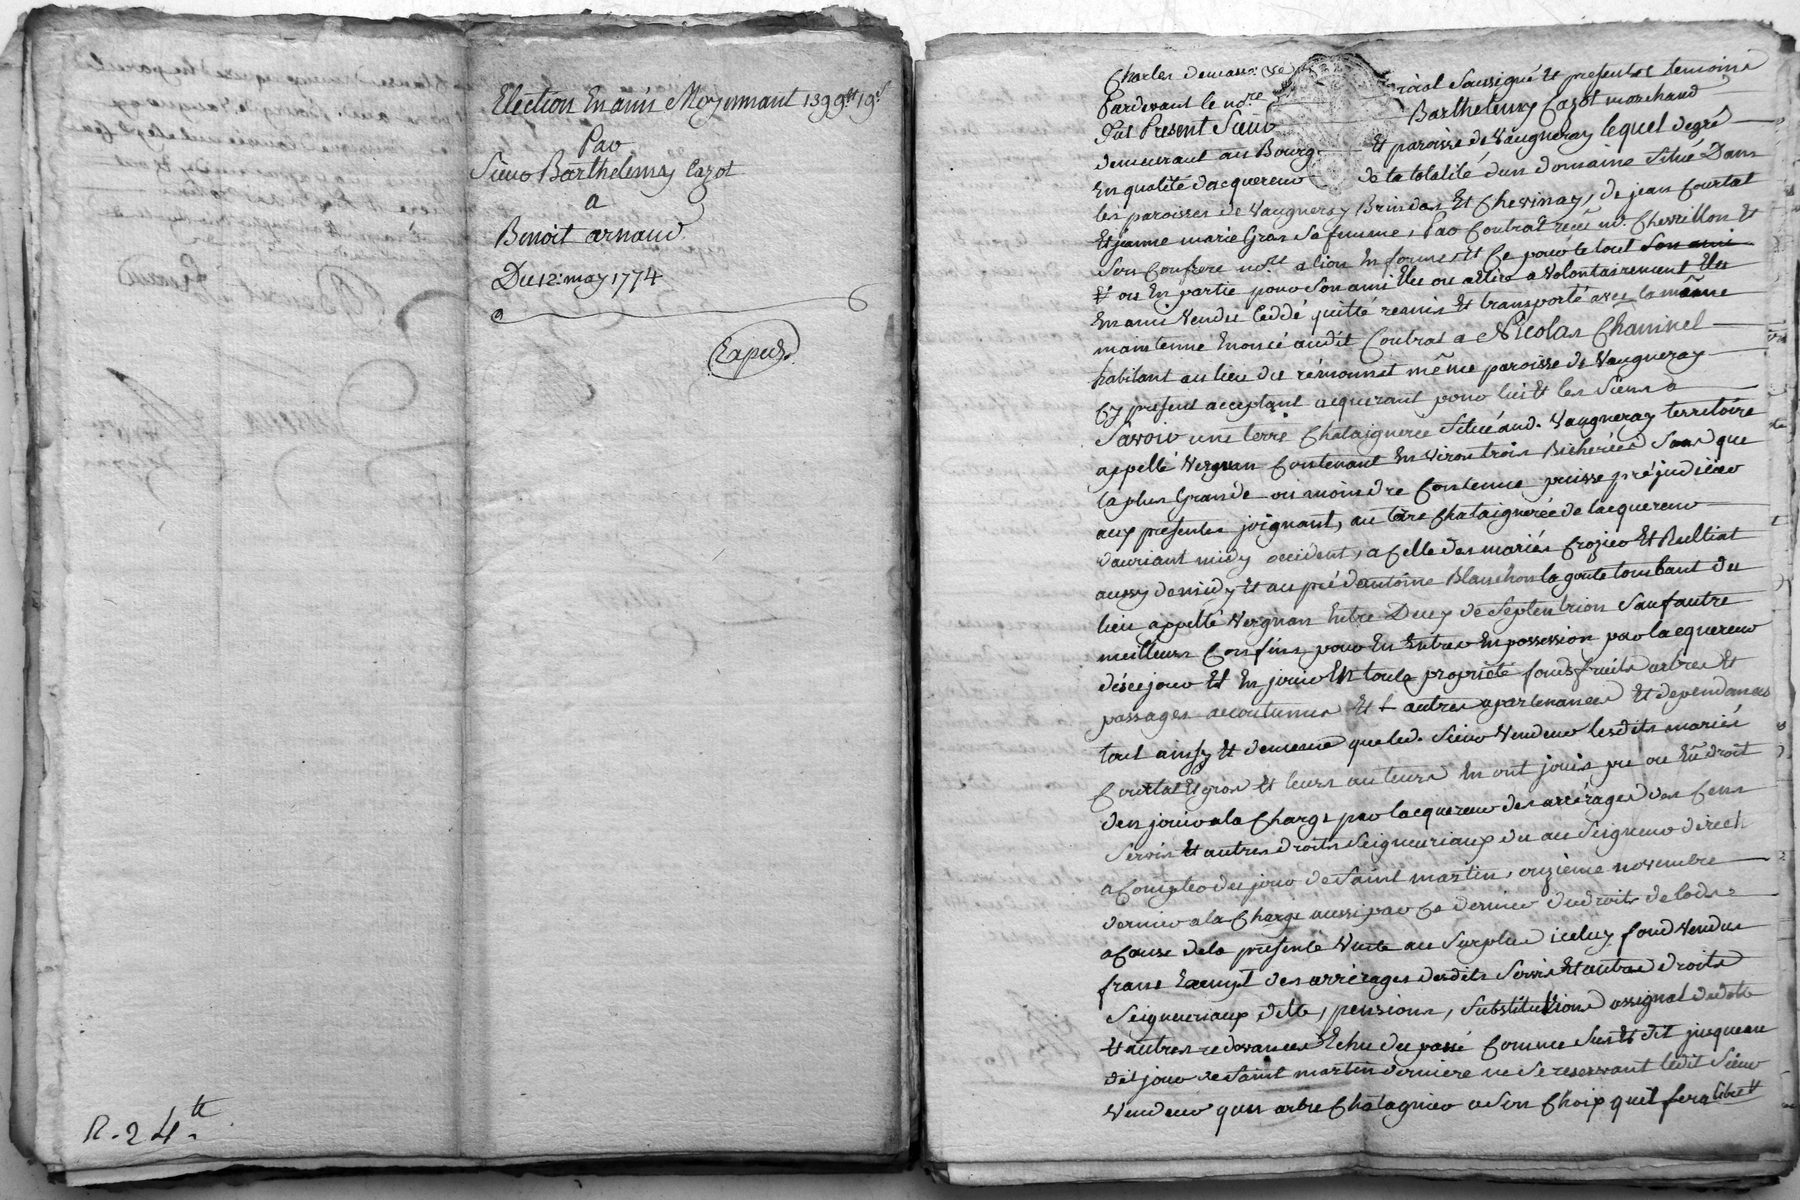 Election En ami Moyennant 1399ᵗᵗ 19ˢ
Par
Sieur Barthelemy Cazot
a
Benoit arnaud
Du 12. may 1774
Expedᵉ.
R. 24ᵗᵗ.
Pardevant le noʳᵉ royal Soussigné Et presents temoins
Fut Present Sieur Barthelemy Cazot marchand
demeurant au Bourg Et paroisse de Vaugneray lequel de gré
En qualité d'acquereur de la totalité d'un domaine Situé Dans
les paroisses de Vaugneray Brindas Et Chevinay, de jean Courtat
Et jeanne marie Gras Sa femme, Par Contrat reçu Mᵉ. Chevrillon Et
Son Confrere noʳᵉˢ a lion En forme Et Ce pour le tout Son ami
Et ou En partie pour Son ami Elu ou a Elire a Volontairement Elu
En ami Vendu Ceddé quitté remis Et transporté avec la même
maintenue Enoncé audit Contrat a Nicolas Chaminel
habitant au lieu du rémonnet même paroisse de Vaugneray
Cy present acceptant acquerant pour lui Et les Siens
Savoir une terre Chataigneree Situé aud. Vaugneray territoire
appellé Vergnan Contenant Environ trois Bicherées Sans que
la plus Grande ou moindre Contenue puisse préjudicier
aux presentes joignant, au terre Chataignerée de lacquereur
d'auriant midy occident, a Celle des mariés Crozier Et Rulliat
aussy de midy Et au pré d'antoine Blanchon la goute tombant du
lieu appellé Vergnan Entre Deux de Septentrion Sauf autre
meilleurs Confins, pour En Entrer En possession par lacquereur
dés ce jour Et En jouir En toute propriété fonds fruits arbres Et
passages accoutumés Et autres apartenances Et dependances
tout ainsy Et de meme que led. Sieur Vendeur lesdits mariés
Courtat Et gras Et leurs auteurs En ont jouis pu ou Eu droit
d'en jouir a la Charge par lacquereur des arrérages des Cens
Servis Et autres droits Seigneuriaux du au Seigneur direct
a Compter du jour de Saint martin, onzième novembre
dernier a la Charge aussi par Ce dernier du droits de lods
a Cause de la presente Vente au Surplus iceluy fond Vendus
franc Exempt des arrérages desdits Servis Et autres droits
Seigneuriaux dette, pensions, Substitutions assignat de dote
Et autres redevances Echu du passé Comme Sus Et dit jusqueau
dit jour de Saint martin dernière ne Se reservant ledit Sieur
Vendeur qu'un arbre Chatagnier a Son Choix quil fera